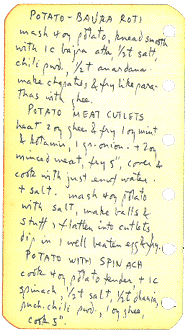 POTATO-BAJRA ROTI
mash 4oz potato, knead smooth
with 1c bajra atta ½t salt
chili pwd., ½t anardana.
make chapatis & fry like para-
thas with ghee.
POTATO MEAT CUTLETS
heat 2oz ghee & fry 1oz mint
& kotamir, 1 gr. onion + 20z
minced meat, fry 5", cover &
cook with just enuf water
+ salt. mash 4oz potato
with salt, make balls &
stuff, flatten into cutlets
dip in 1 well beaten egg & fry.
POTATO WITH SPINACH
cook 4oz potato tender, + 1c
spinach, ½t salt, ½t dhania,
pnch. chili pwd., 1oz ghee,
cook 5".